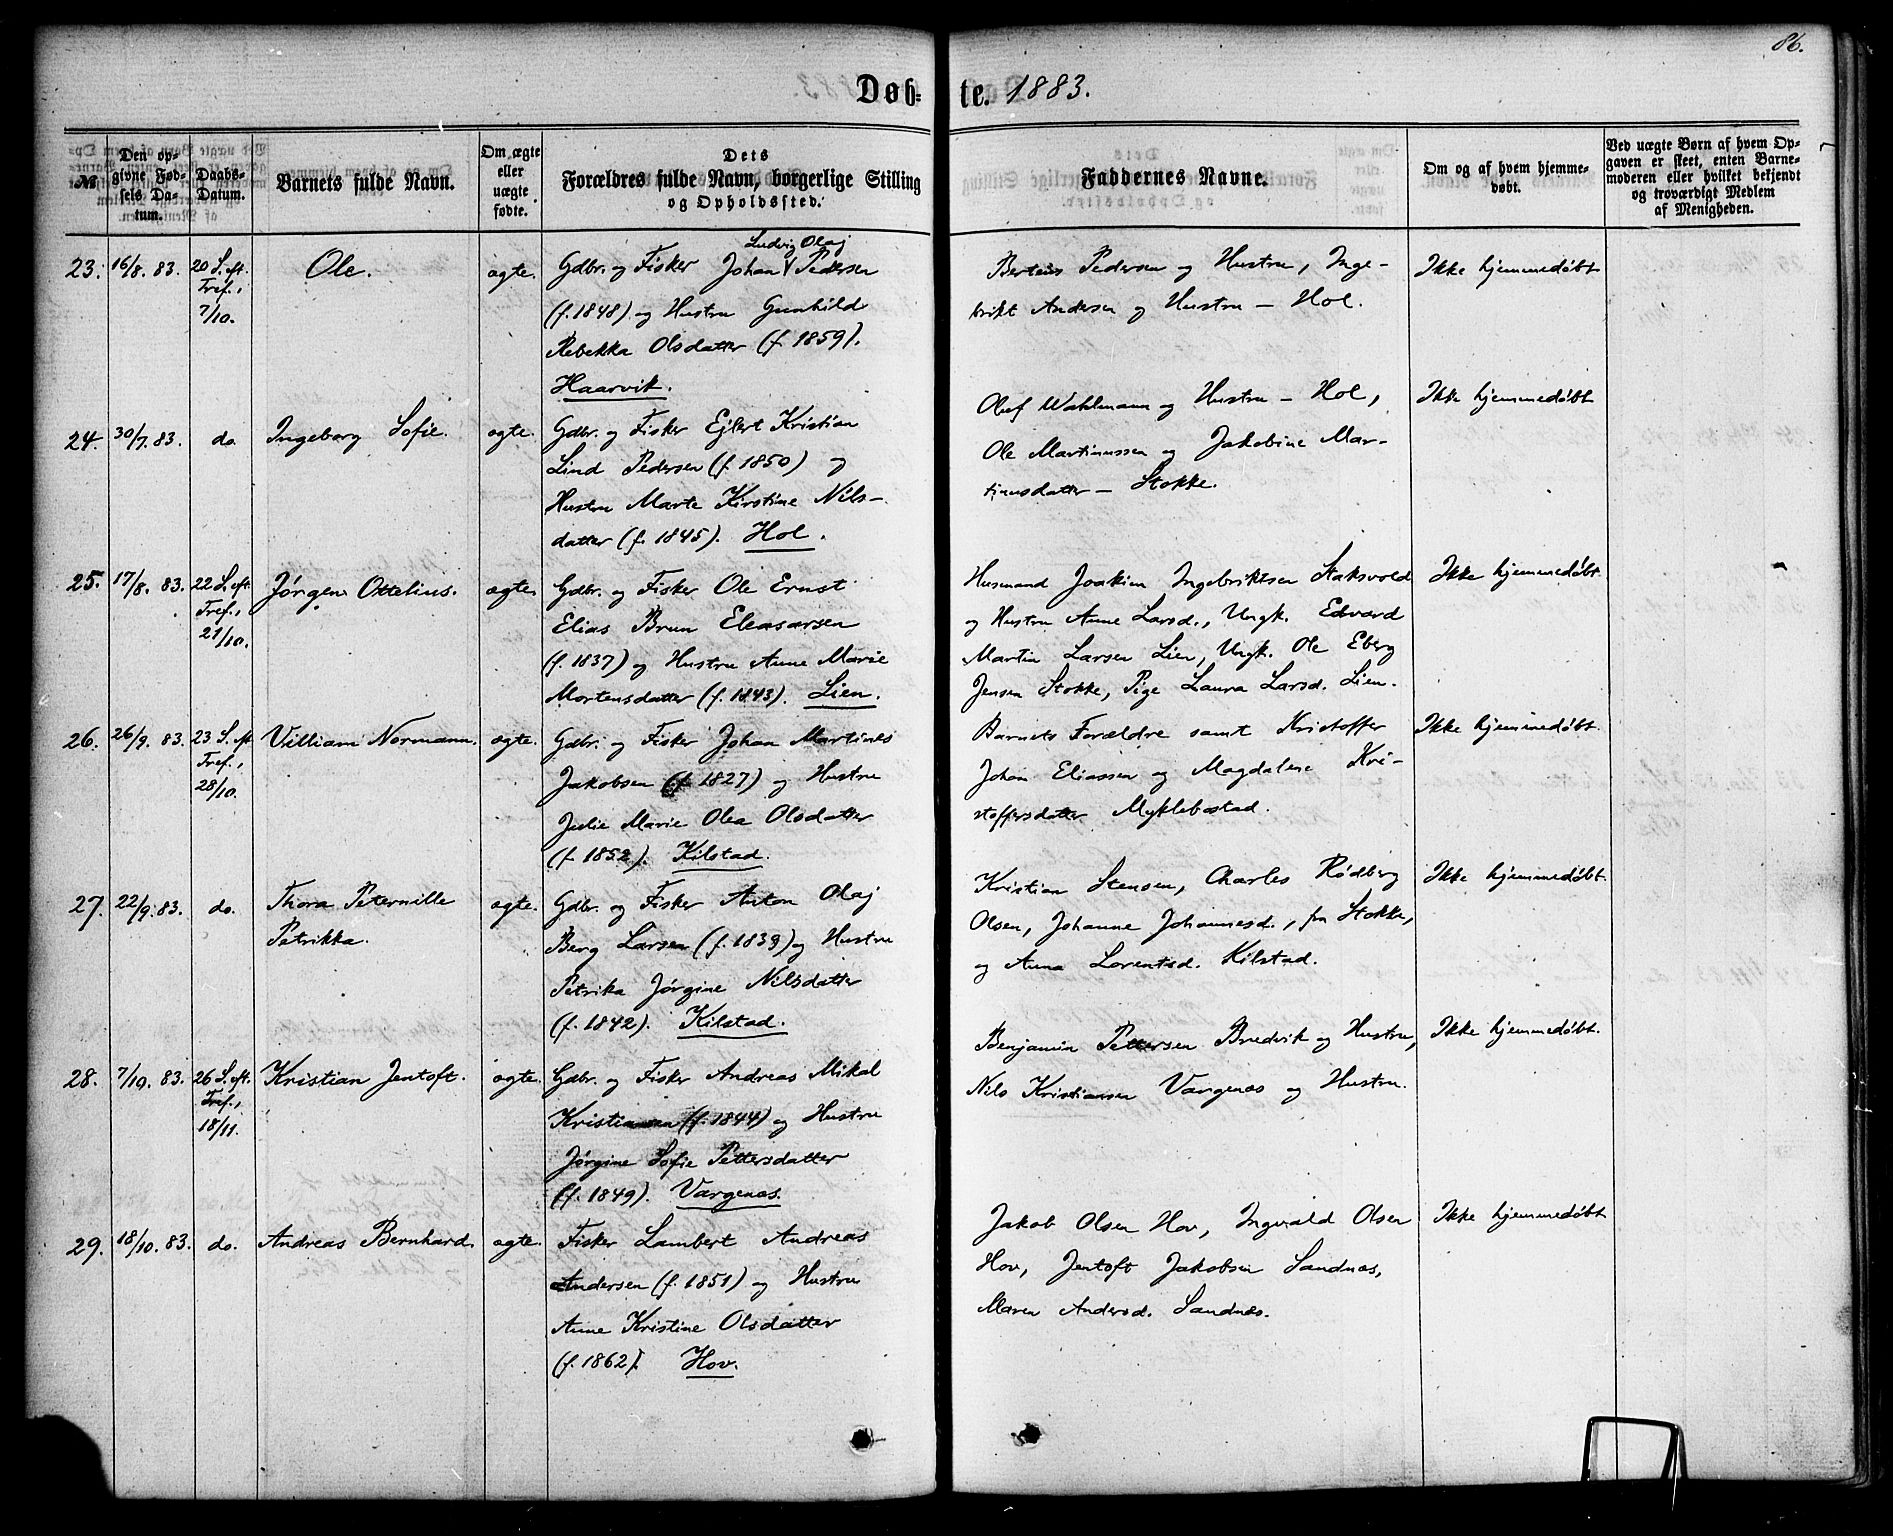 86.
Døb-te. 1883.
№
Den op-
givne Fød-
sels Da-
tum.
Daabs-
Datum.
Barnets fulde Navn.
Om ægte
eller
uægte
fødte.
Dets
Forældres fulde Navn, borgerlige Stilling
og Opholdssted.
Faddernes Navne.
Om og af hvem hjemme-
døbt.
Ved uægte Børn af hvem Op-
gaven er skeet, enten Barne-
moderen eller hvilket bekjendt
og troværdigt Medlem
af Menigheden.
23. 16/8. 83. 20 S. eft.
Tref.,
7/10.
Ole.
ægte.
Ludvig Olaj
Gdbr. og Fisker Johan Pedersen
(f. 1848) og Hustru Gunhild
Rebekka Olsdatter (f. 1859).
Haarvik.
Berteus Pedersen og Hustru, Inge-
brikt Andersen og Hustru – Hol.
Ikke hjemmedøbt
24. 30/7. 83. do. Ingeborg Sofie. ægte.
Gdbr. og Fisker Ejlert Kristian
Lind Pedersen (f. 1850) og
Hustru Marte Kirstine Nils-
datter (f. 1845). Hol.
Oluf Wahlmann og Hustru – Hol,
Ole Martinussen og Jakobine Mar-
tinusdatter – Stokke.
Ikke hjemmedøbt
25. 17/8. 83. 22 S. eft.
Tref.,
21/10.
Jørgen Ottelius. ægte.
Gdbr. og Fisker Ole Ernst
Elias Brun Eleasarsen
(f. 1837) og Hustru Anne Marie
Mortensdatter (f. 1843). Lien.
Husmand Joakim Ingebriktsen Staksvold
og Hustru Anne Larsd., Ungk. Edvard
Martin Larsen Lien, Ungk. Ole Eberg
Jensen Stokke, Pige Laura Larsd. Lien.
Ikke hjemmedøbt.
26. 26/9. 83. 23 S. eft
Tref.,
28/10.
Villiam Normann. ægte.
Gdbr. og Fisker Johan Martines
Jakobsen (f. 1827) og Hustru
Julie Marie Olea Olsdatter
(f. 1852). Kilstad.
Barnets Forældre samt Kristoffer
Johan Eliassen og Magdalene Kri-
stoffersdatter Myklebostad.
Ikke hjemmedøbt.
27. 22/9. 83. do. Thora Peternille
Petrikka.
ægte.
Gdbr. og Fisker Anton Olaj
Berg Larsen (f. 1839) og Hustru
Petrika Jørgine Nilsdatter
(f. 1842). Kilstad.
Kristian Stensen, Charles Rødberg
Olsen, Johanne Johannesd., fra Stokke,
og Anna Lorentsd. Kilstad.
Ikke hjemmedøbt.
28. 7/10. 83. 26 S. eft.
Tref.,
18/11.
Kristian Jentoft. ægte.
Gdbr. og Fisker Andreas Mikal
Kristiansen (f. 1844) og Hustru
Jørgine Sofie Pettersdatter
(f. 1849). Vargenæs.
Benjamin Pettersen Bredvik og Hustru,
Nils Kristiansen Vargenæs og Hustru.
Ikke hjemmedøbt.
29. 18/10. 83. do. Andreas Bernhard. ægte.
Fisker Lambert Andreas
Andersen (f. 1851) og Hustru
Anne Kristine Olsdatter
(f. 1862). Hov.
Jakob Olsen Hov, Ingvald Olsen
Hov, Jentoft Jakobsen Sandnæs,
Maren Andersd. Sandnæs.
Ikke hjemmedøbt